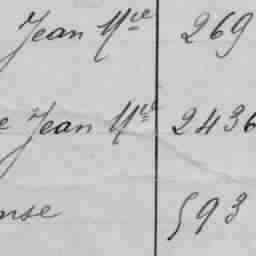 Jean Mce 269
e Jean Mce 2436
nse 593